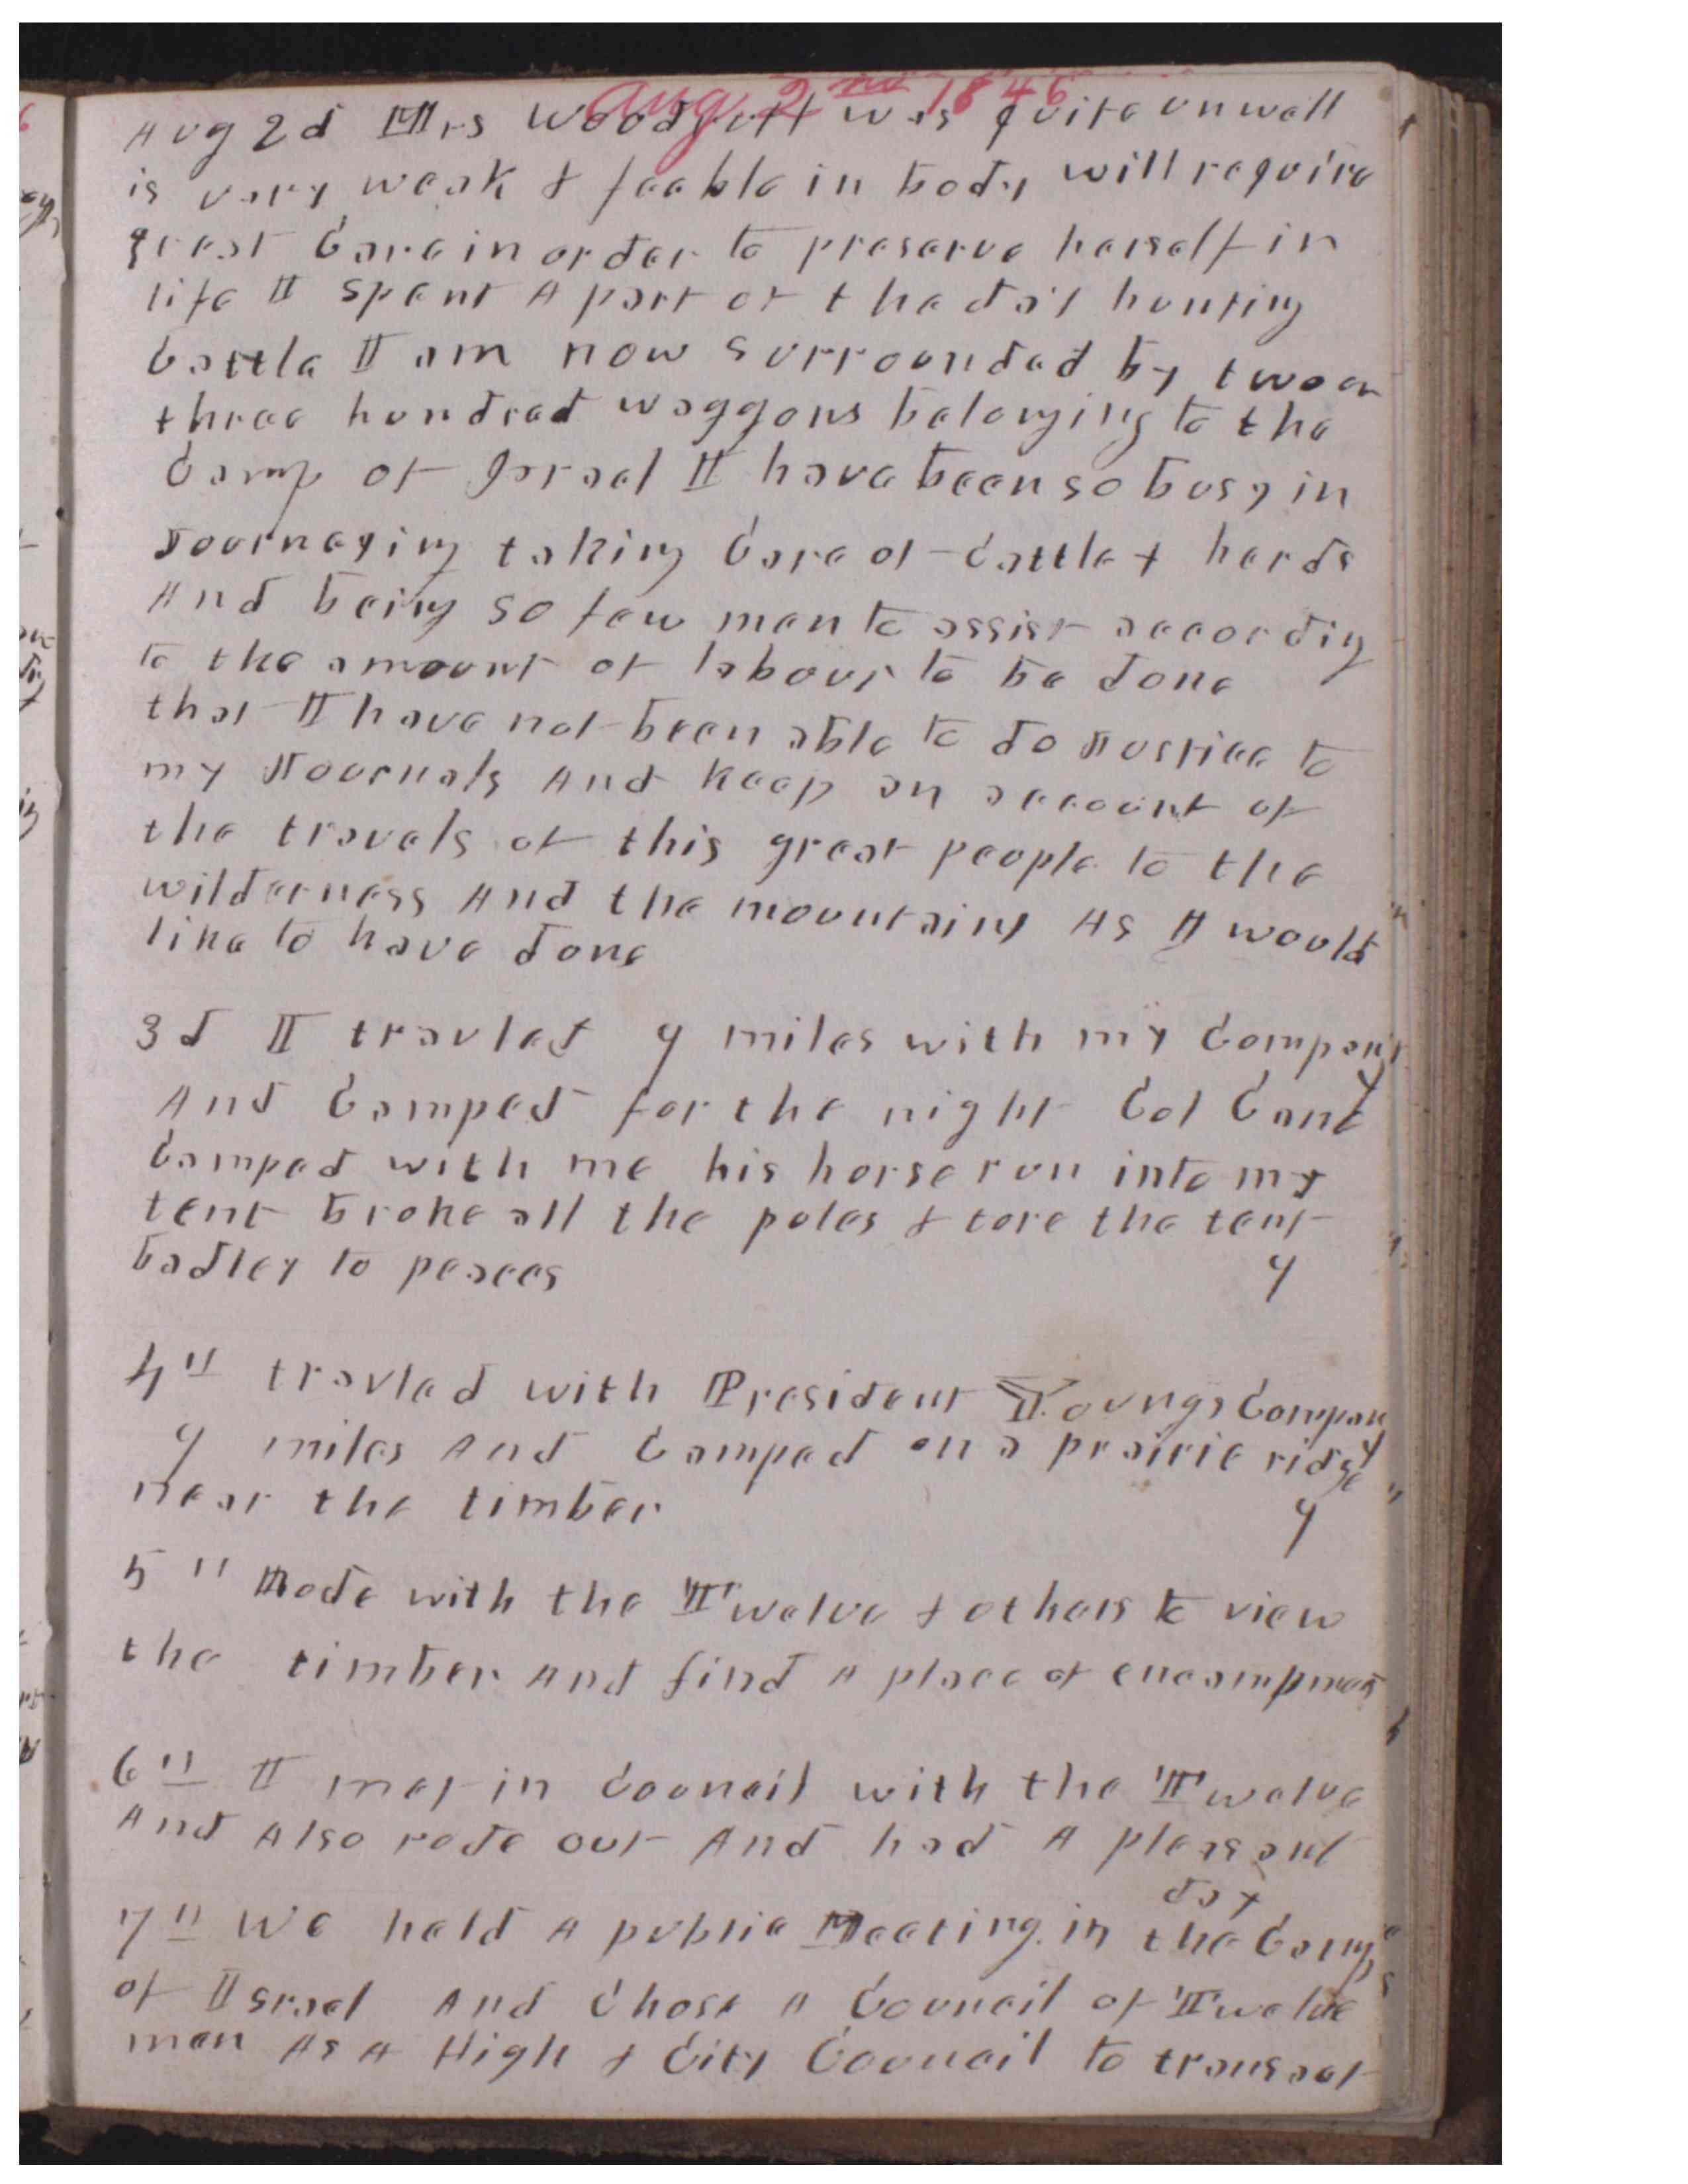 Aug 2nd 1846
Aug 2d Mrs Woodruff was quite unwell
is very weak & feeble in body will require
great Care in order to preserve herself in
life I spent A part of the day hunting
Cattle I am now surrounded by two or
three hundred waggons belonging to the
Camp of Israel I have been so busy in
Journeying taking Care of Cattle & herds
And being so few men to assist according
to the amount of labour to be done
that I have not been able to do Justice to
my Journals And keep an account of
the travels of this great people to the
wilderness And the mountains As I would
like to have done
3d I travled 9 miles with my Company
And Camped for the night Col Cane
Camped with me his horse run into my
tent broke all the poles & tore the tent
badley to peaces 9
4th travled with President Youngs Company
9 miles And Camped on a prairie ridge
near the timber 9
5th Rode with the Twelve & others to view
the timber And find A place of encampment
6th I met in Council with the Twelve
And Also rode out And had A pleasant
day
7th We held A public Meeting in the Camp
of Israel And Chose A Council of Twelve
men As A High & City Council to transact